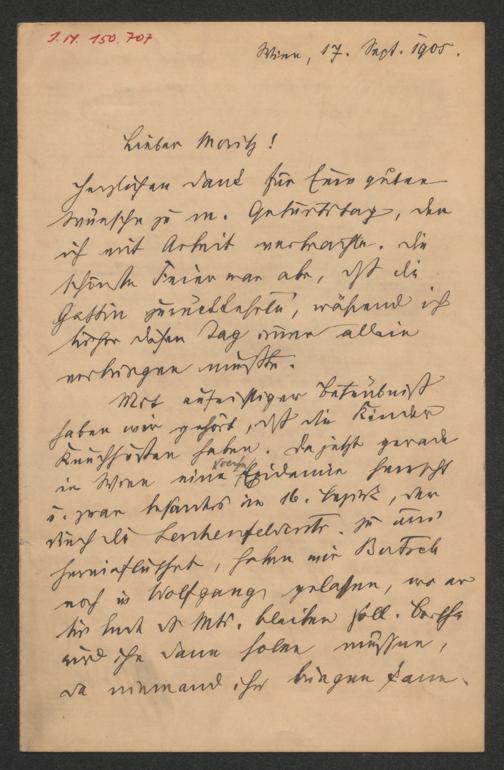 J.N. 150.707
Wien, 17. Sept. 1905.
Lieber Moritz!
Herzlichen Dank für Eure guten
Wünsche zu m. Geburtstag, den
ich mit Arbeit verbrachte. Die
schönste Feier war aber, dß die
Gattin zurückkehrte, während ich
bisher diesen Tag immer allein
verbringen mußte.
Mit aufrichtiger Betrübniß
haben wir gehört, dß die Kinder
Keuchhusten haben. Da jetzt gerade
in Wien eine Epidemie herrscht
u. zwar besonders im 16. Bezirk, der
durch die Lerchenfelderstr. zu uns
hereinfluthet, haben wir
noch in Wolfgang gelassen, wo er
bis Ende d. Mts. bleiben soll.
wird ihn dann holen müssen,
da niemand ihn bringen kann.